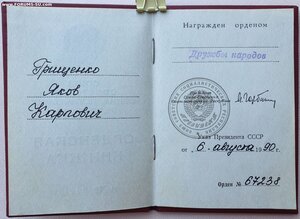 www.FORUMS-SU.com
Грищенко
Яков
Карпович
Награжден орденом
Дружбы народов
Указ Президента СССР
от „6„ августа 1990 г.
Орден № 67238